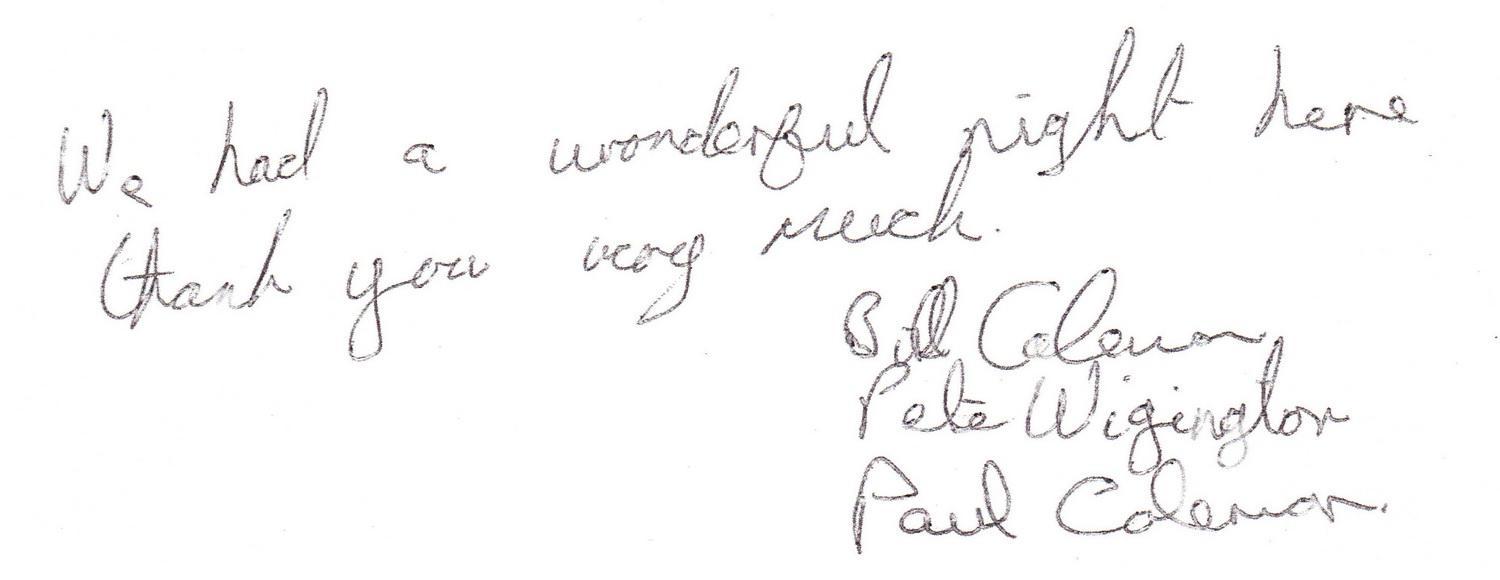 We had a wonderful night here
thank you very much.
Bill Coleman
Pete Wigington
Paul Coleman.